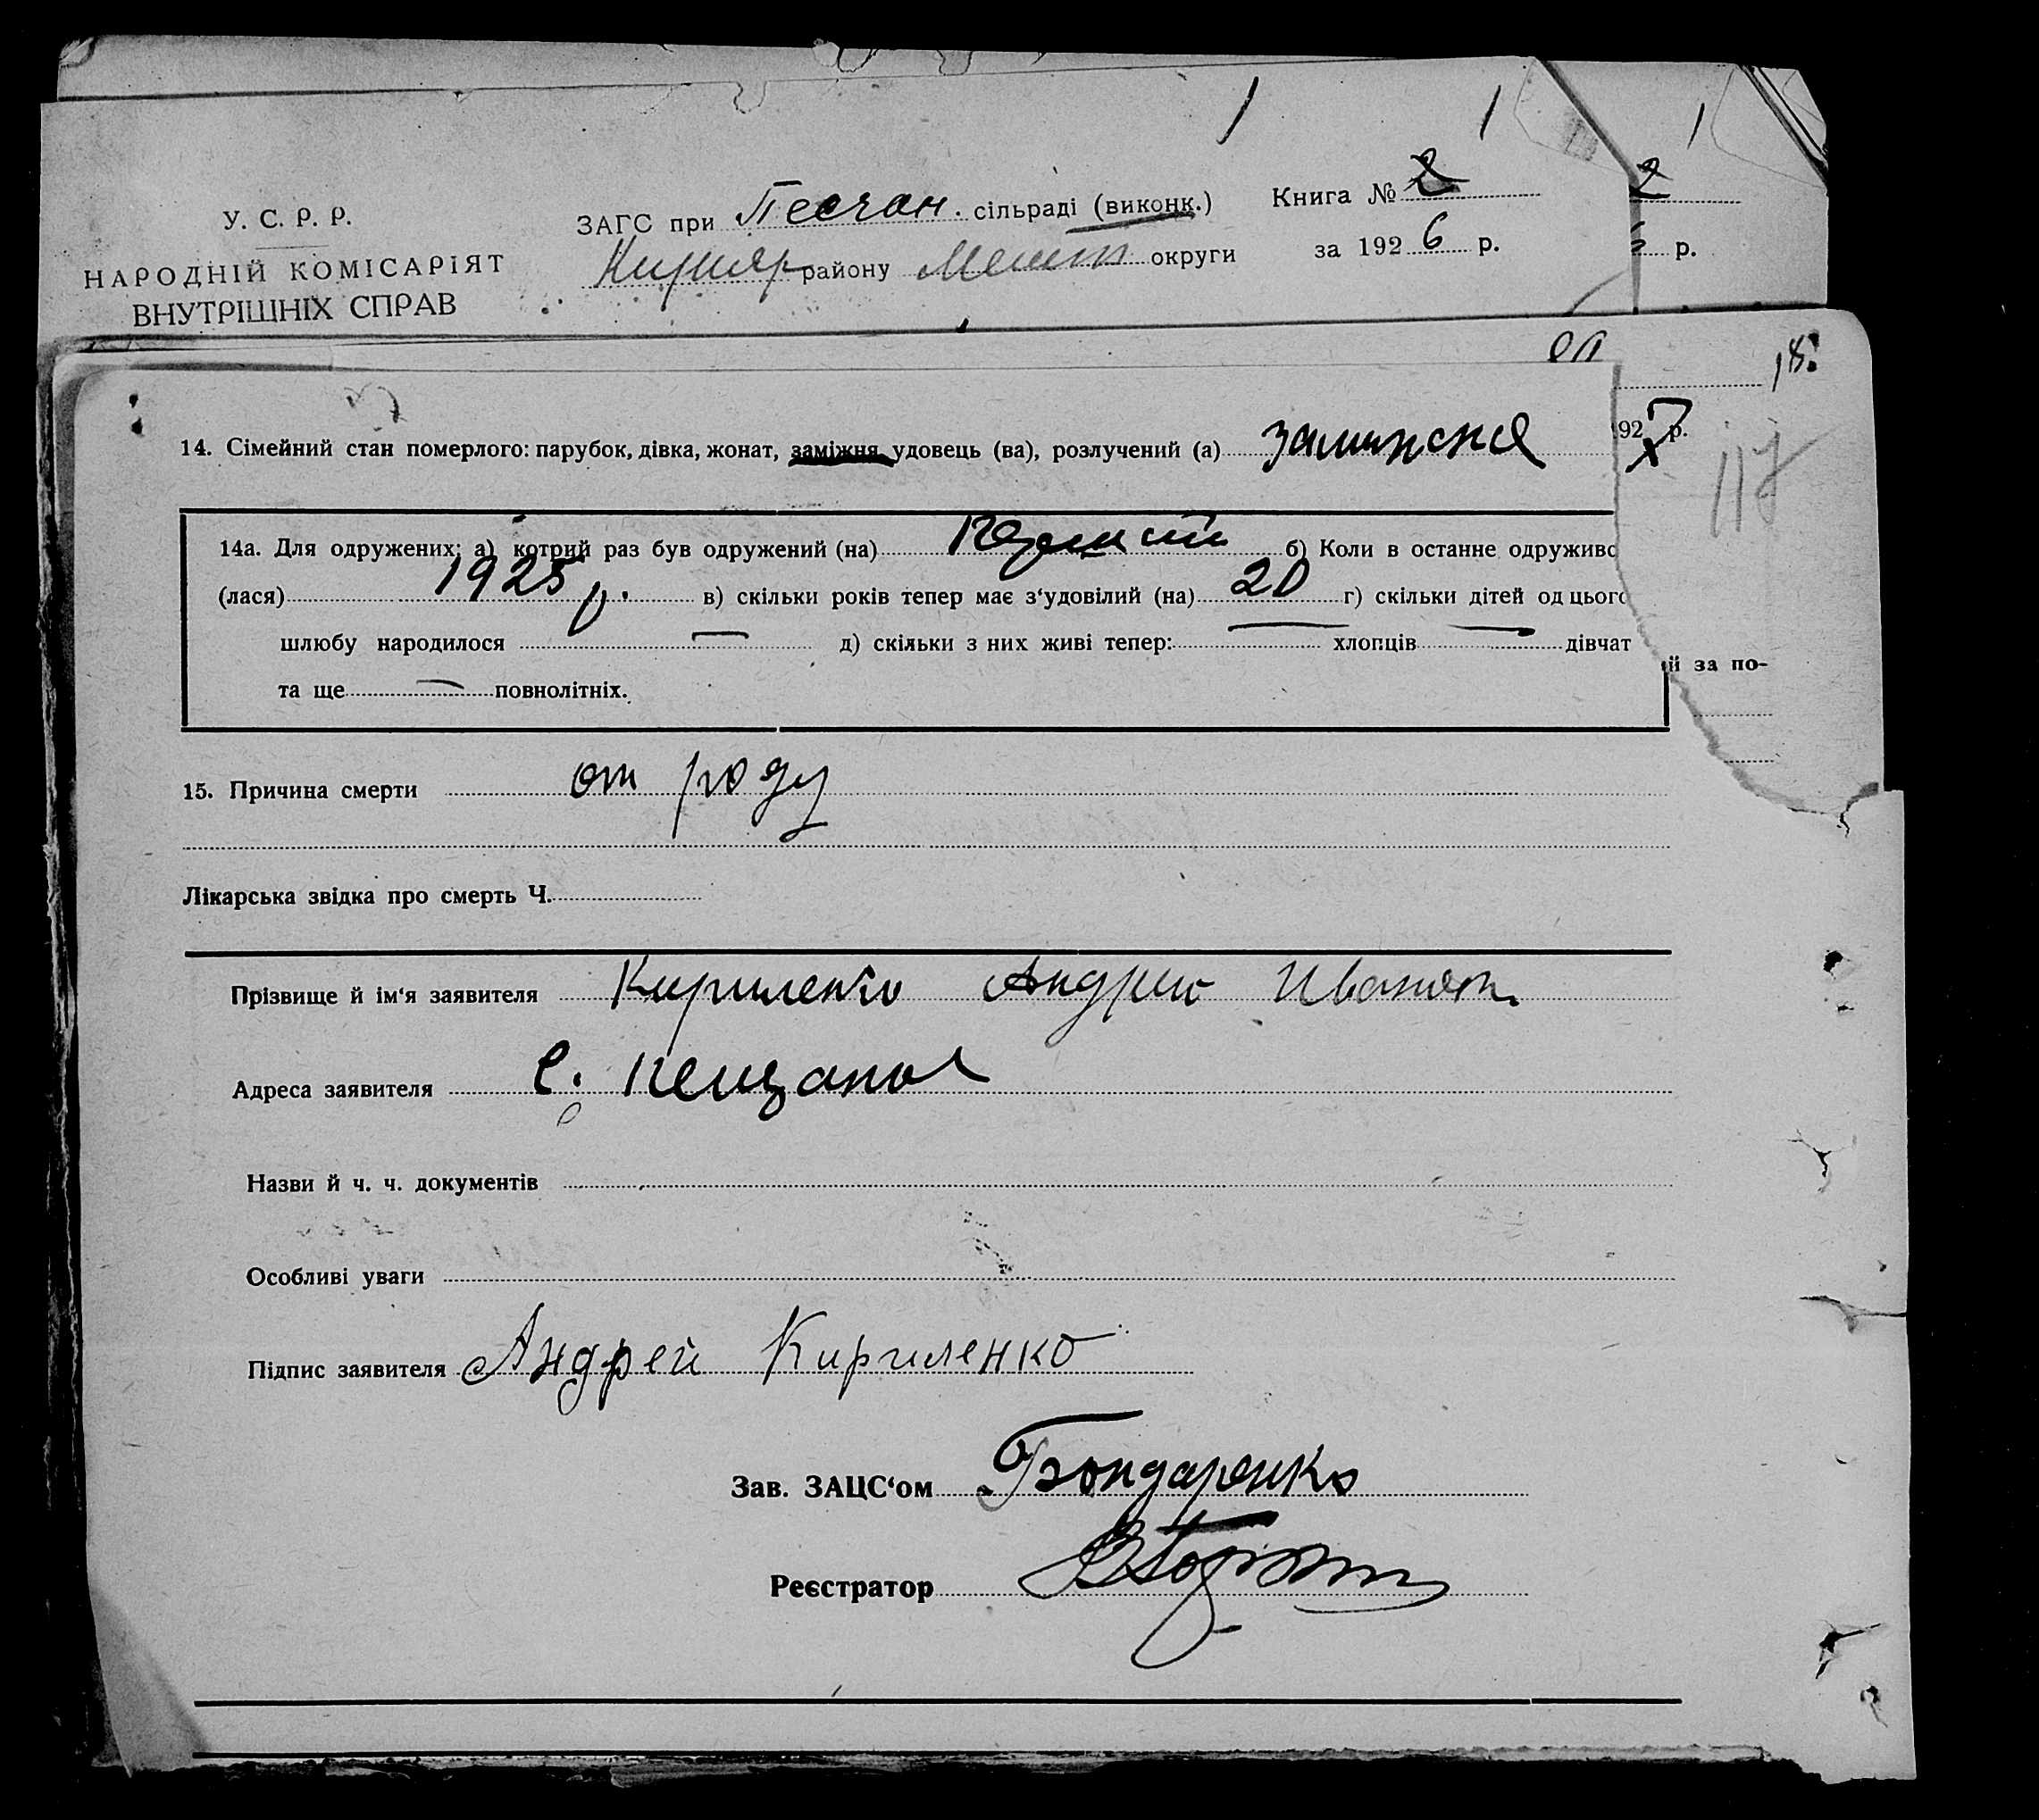 У. С. Р. Р.
НАРОДНІЙ КОМІСАРІЯТ
ВНУТРІШНІХ СПРАВ
ЗАГС при Песчан. сільраді (виконк.)
району Мелит округи
Книга № 2
за 1926 р.
2
р.
18
1927 р.
117
14. Сімейний стан померлого: парубок, дівка, жонат, заміжня, удовець (ва), розлучений (а) замужня
14а. Для одружених: а) котрий раз був одружений (на) б) Коли в останне одруживс
(лася) 1925 р. в) скільки років тепер має з‘удовілий (на) 20 г) скільки дітей од цього
шлюбу народилося — д) скільки з них живі тепер: — хлопців — дівчат
та ще — повнолітніх.
й за по-
15. Причина смерти от роду
Лікарська звідка про смерть Ч.
Прізвище й ім‘я заявителя Кириленко Андрій Иванов.
Адреса заявителя с. Пещаное
Назви й ч. ч. документів
Особливі уваги
Підпис заявителя Андрей Кириленко
Зав. ЗАЦС‘ом Бондаренко
Реєстратор